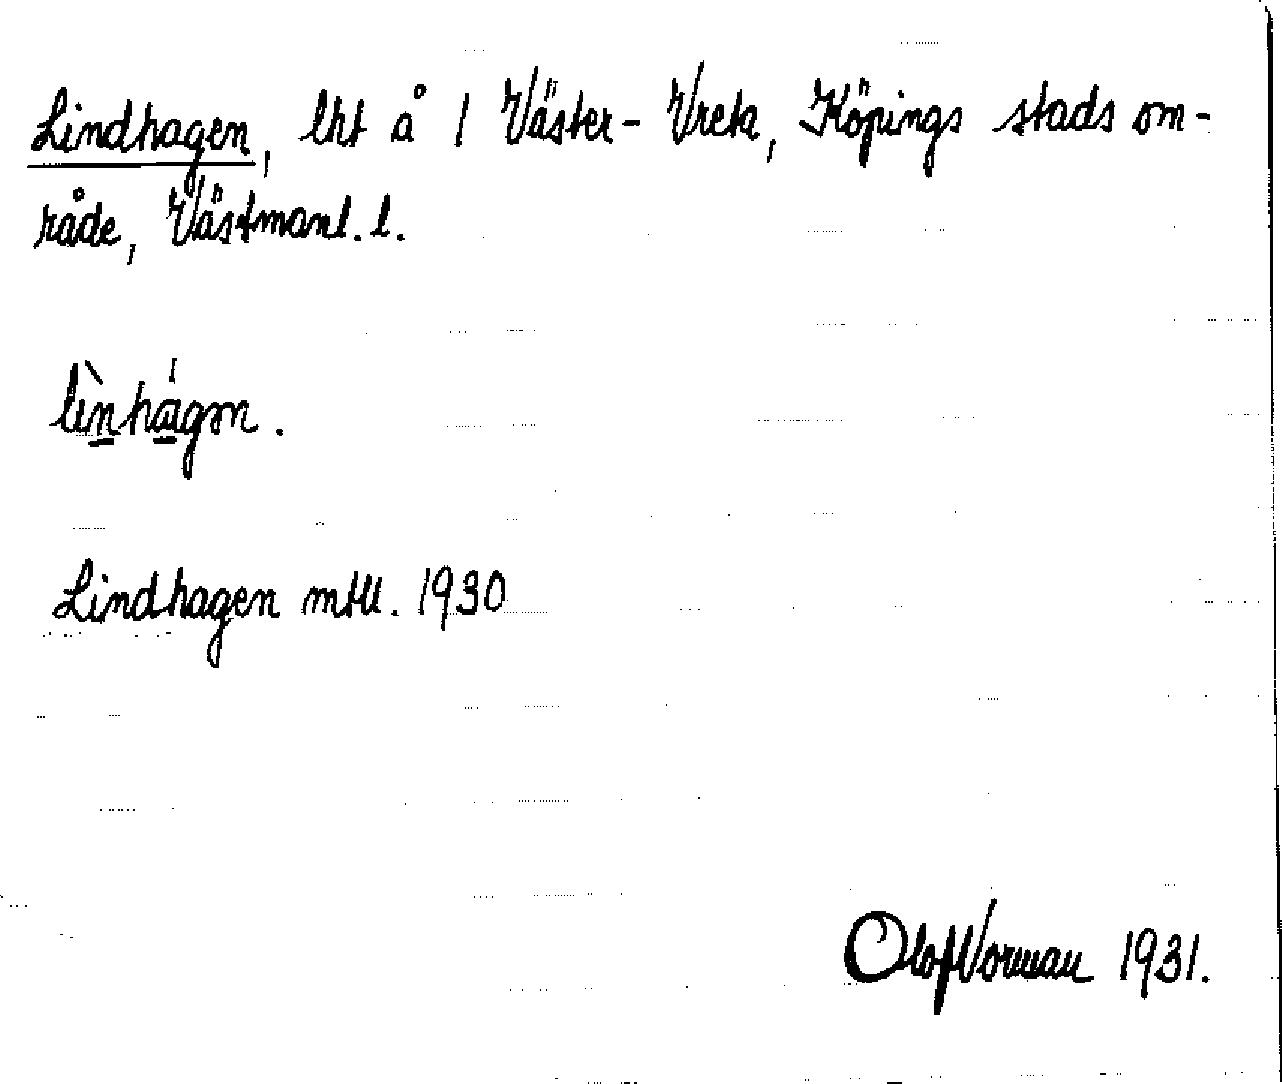 Lindhagen, lht å 1 Väster-Vreta, Köpings stads om-
råde, Västmanl. l.
lìnhágən.
Lindhagen mtll. 1930
Olof Norman 1931.